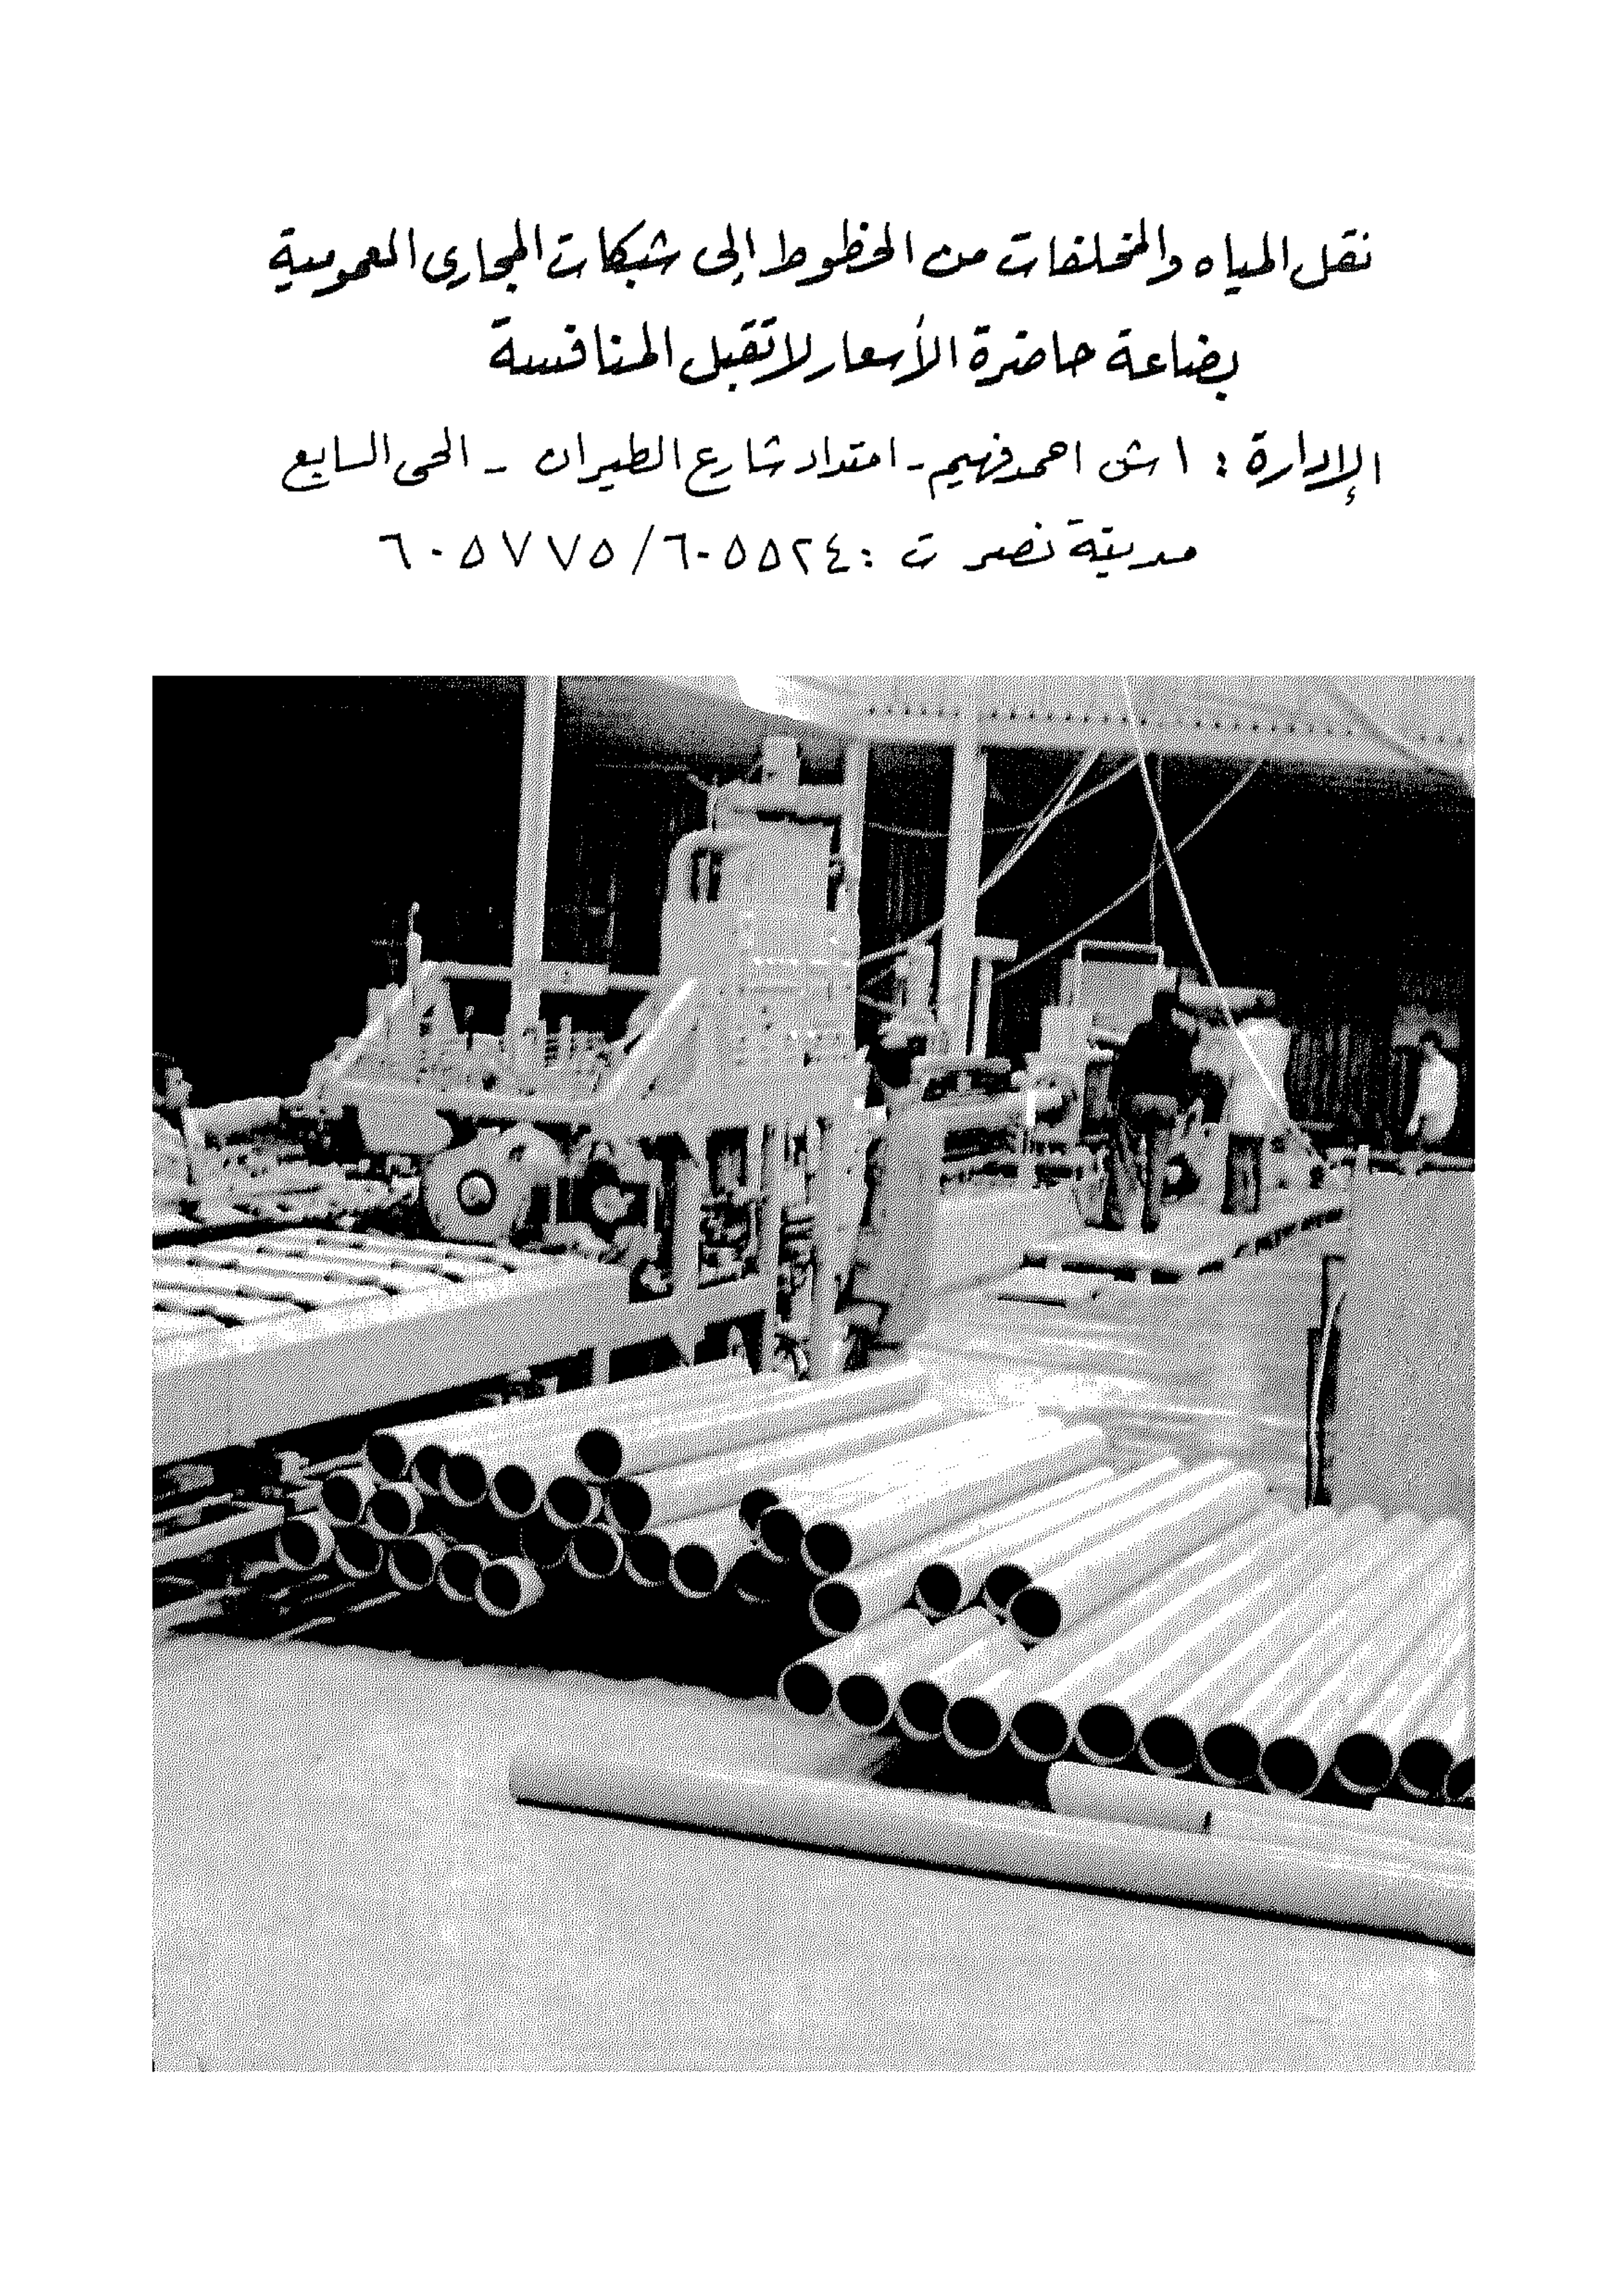 نقل المياه والمخلفات من الخطوط إلى شبكات المجارى العمومية
بضاعة حاضرة الأسعار لا تقبل المنافسة
الإدارة : ١ ش احمد فهيم - امتداد شارع الطيران - الحى السابع
مدينة نصر ت : ٦٠٥٥٢٤ / ٦٠٥٧٧٥